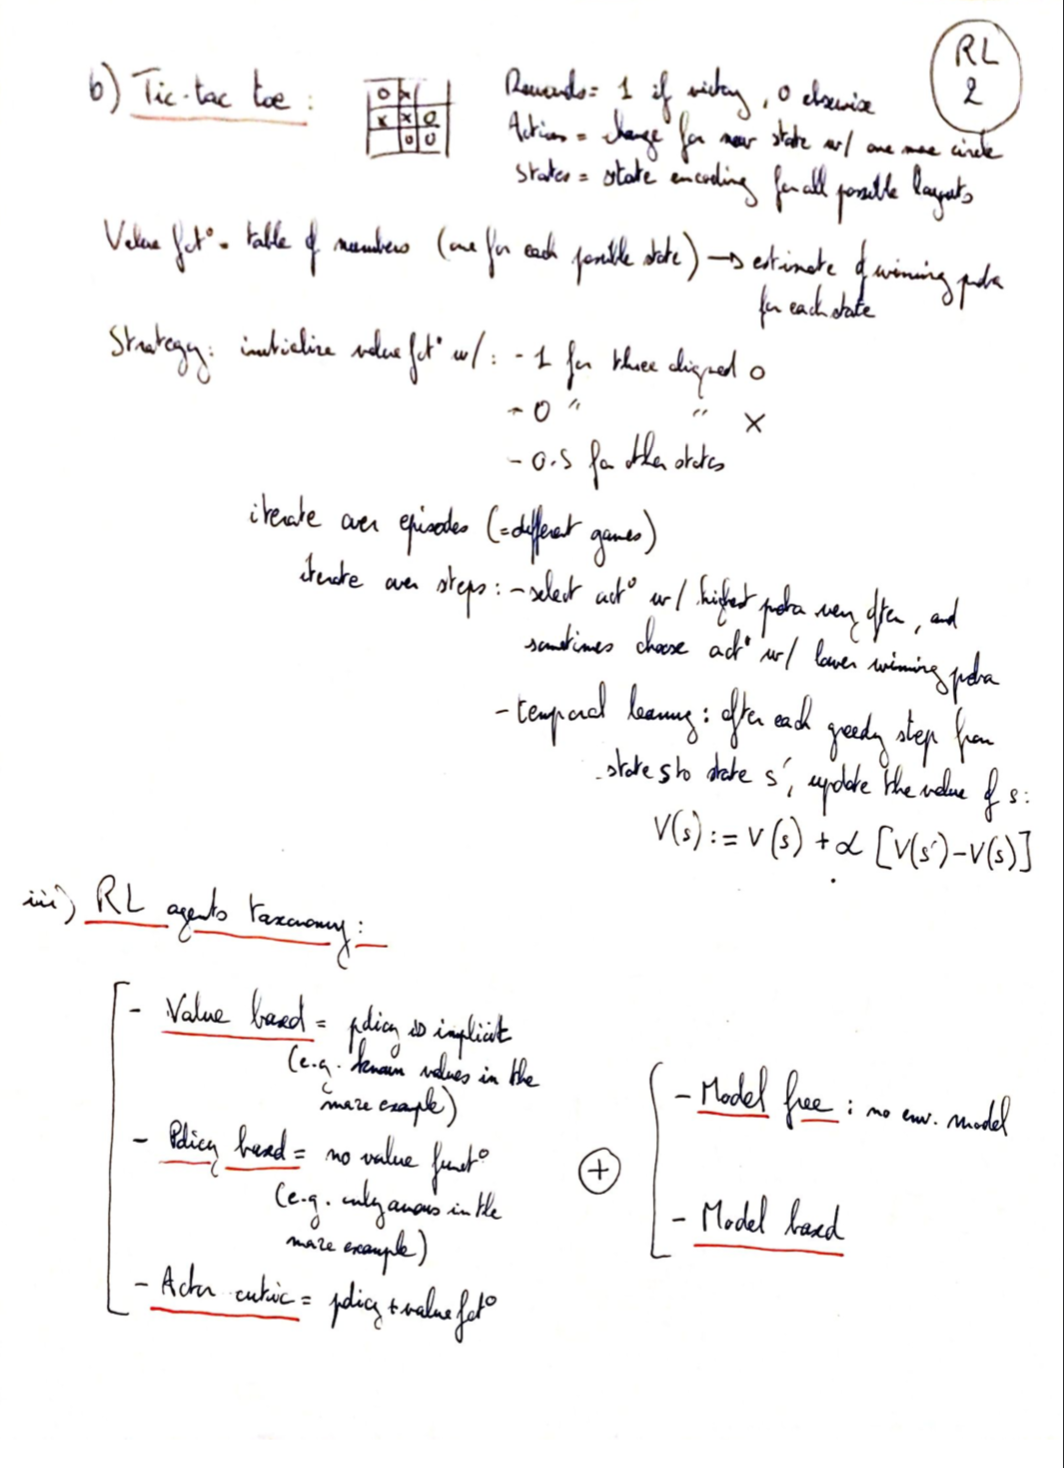 RL
2
b) Tic-tac toe :
O X
X X O
O O
Rewards = 1 if victory, 0 otherwise
Actions = change for new state w/ one more circle
States = state encoding for all possible layouts
Value fct° = table of numbers (one for each possible state) → estimate of winning proba
for each state
Strategy: initialize value fct° w/ : - 1 for three aligned O
- 0 " " X
- 0.5 for other states
iterate over episodes (=different games)
iterate over steps : - select act° w/ highest proba very often, and
sometimes choose act° w/ lower winning proba
- temporal learning : after each greedy step from
state s to state s', update the value of s :
V(s) := V(s) + α [V(s')-V(s)]
iii) RL agents taxonomy :
- Value based = policy is implicit
(e.g. known values in the
maze example)
- Policy based = no value funct°
(e.g. only arrows in the
maze example)
- Actor critic = policy + value fct°
+
- Model free : no env. model
- Model based